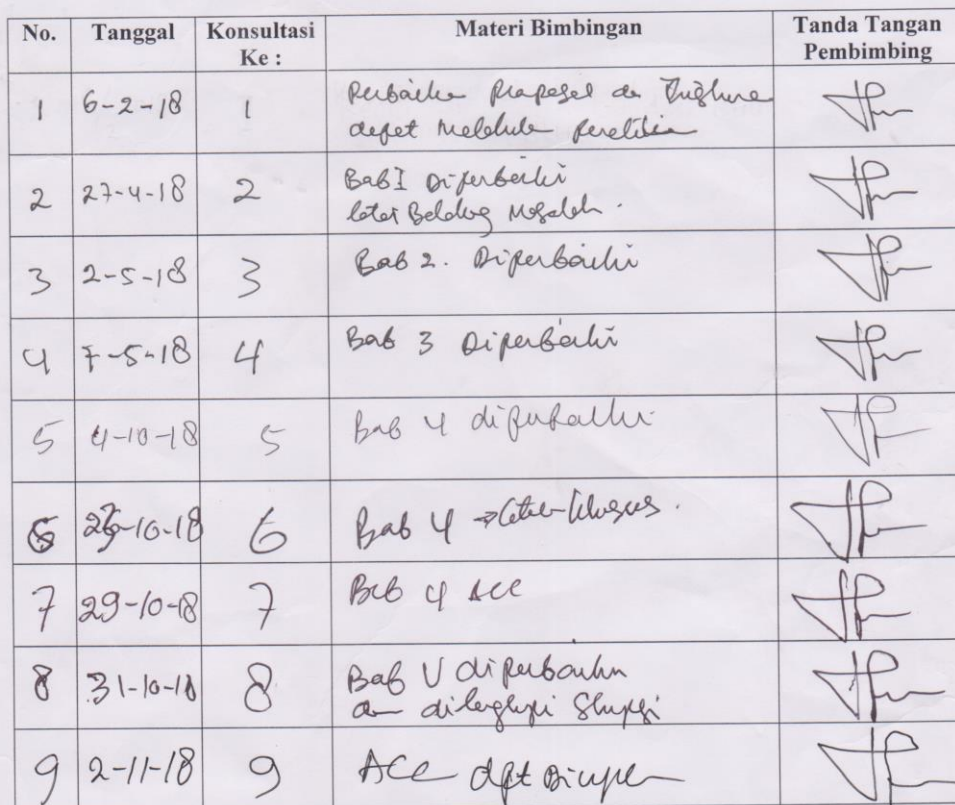 No. Tanggal Konsultasi Ke : Materi Bimbingan Tanda Tangan Pembimbing
1 6-2-18 1 Perbaikan Proposal dan
dapat Melakukan Penelitian
2 27-4-18 2 Bab I Diperbaiki
latar Belakang Masalah.
3 2-5-18 3 Bab 2. Diperbaiki
4 7-5-18 4 Bab 3 Diperbaiki
5 4-10-18 5 Bab 4 diperbaiki
6 -10-18 6 Bab 4 →
7 29-10-18 7 Bab 4 ACC
8 31-10-18 8 Bab V diperbaiki
dan dilengkapi Skripsi
9 2-11-18 9 ACC dpt